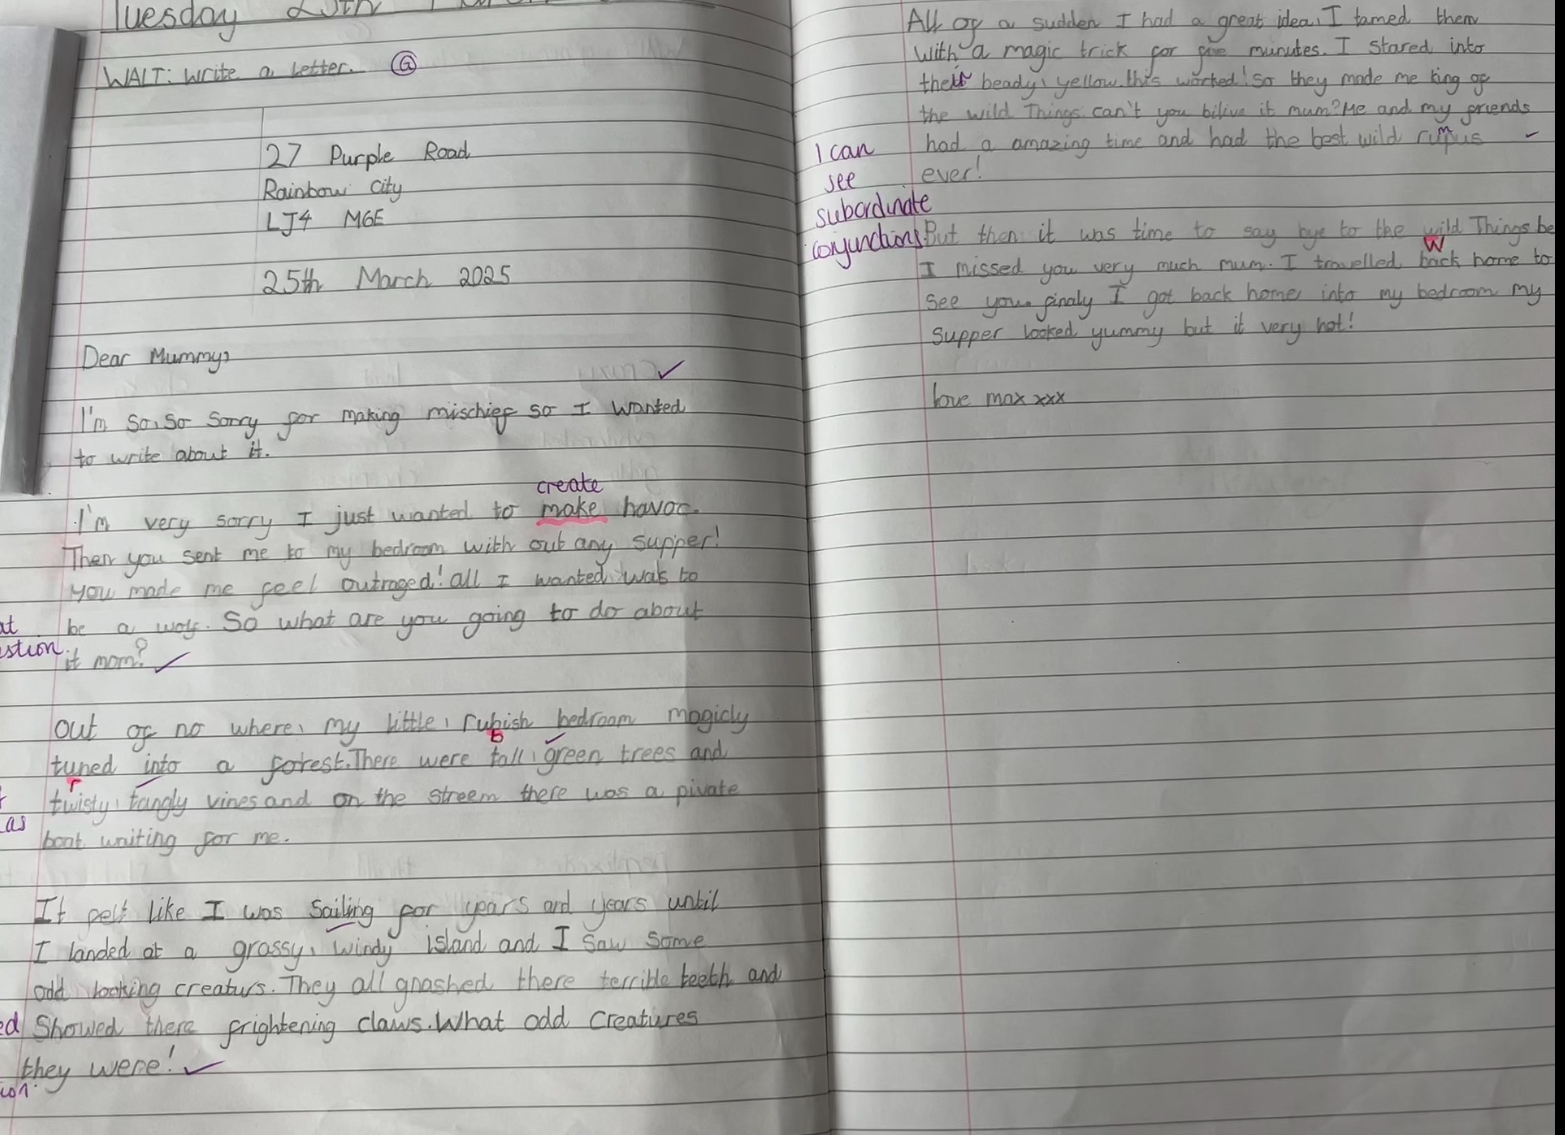 Tuesday 25th March
WALT: Write a letter. G
27 Purple Road
Rainbow City
LJ4 M6E
25th March 2025
Dear Mummy,
I'm so, so sorry for making mischief so I wanted
to write about it.
create
I'm very sorry I just wanted to make havoc.
Then you sent me to my bedroom with out any supper!
You made me feel outraged! all I wanted was to
be a wolf. So what are you going to do about
it mom?
out of no where, my little, rubish bedroom magicly
b
tuned into a forest. There were tall, green trees and
r
twisty, tangly vines and on the streem there was a pivate
boat waiting for me.
It felt like I was sailing for years and years until
I landed at a grassy, windy island and I saw some
odd looking creaturs. They all gnashed there terrible teeth and
Showed there frightening claws. What odd creatures
they were!
estion.
as
ed
All of a sudden I had a great idea, I tamed them
with a magic trick for five munutes. I stared into
their beady, yellow. this worked! So they made me king of
the wild Things. can't you bilive it mum? Me and my friends
had a amazing time and had the best wild rumpus
ever!
I can
see
subordinate
conjunctions
But then it was time to say bye to the wild Things be
W
I missed you very much mum. I travelled back home to
see you. finaly I got back home, into my bedroom my
supper looked yummy but it very hot!
love max xxx